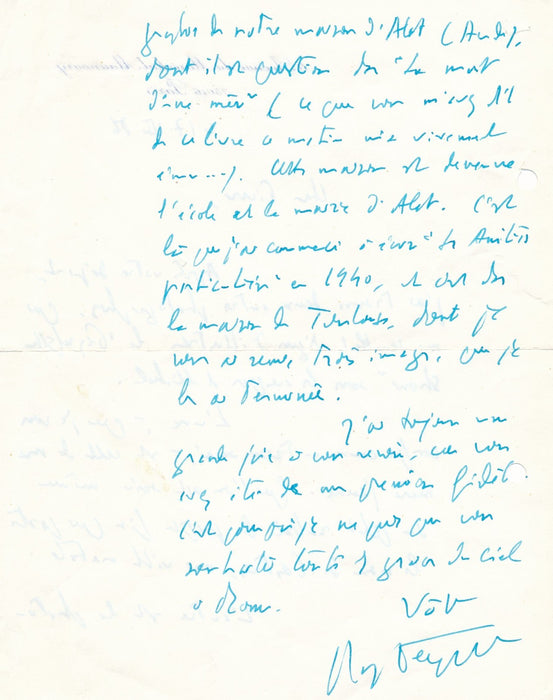 graphies de notre maison d'Alet (Aude),
dont il est question dans "La mort
d'une mère" (ce que vous m'avez dit
de ce livre ce matin m'a vivement
ému....). Cette maison est devenue
l'école et la mairie d'Alet. C'est
là que j'ai commencé à écrire "Les Amitiés
particulières" en 1940, et c'est dans
la maison de Toulouse, dont je
vous ai remis trois images, que je
les ai terminées.
J'ai toujours une
grande joie à vous revoir, car vous
avez été de mes premiers fidèles.
C'est pourquoi je ne puis que vous
souhaiter toutes les grâces du ciel
à Rome.
Vôtre
Roger Peyrefitte